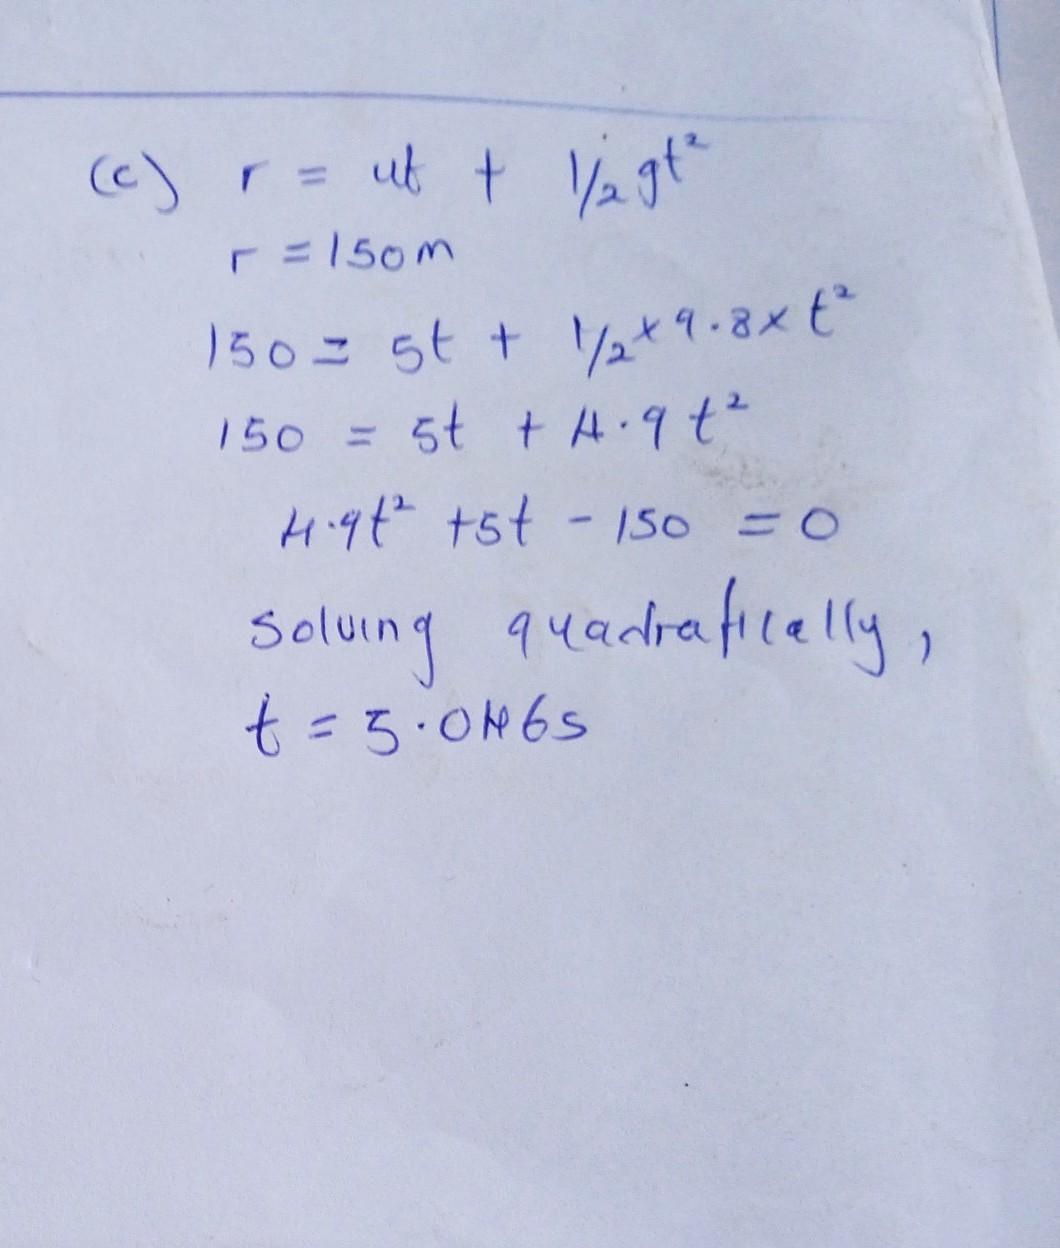 (c) r = ut + 1/2 gt²
r = 150m
150 = 5t + 1/2 x 9.8 x t²
150 = 5t + 4.9 t²
4.9t² + 5t - 150 = 0
solving quadratically,
t = 5.046s